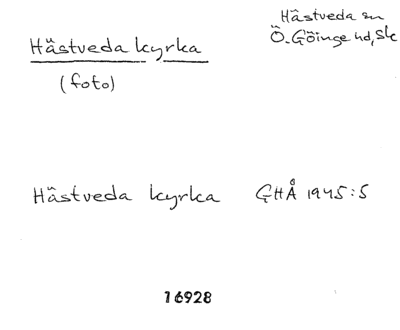 Hästveda kyrka
(foto)
Hästveda sn
Ö. Göinge hd, Sk
Hästveda kyrka GHÅ 1945:5
16928